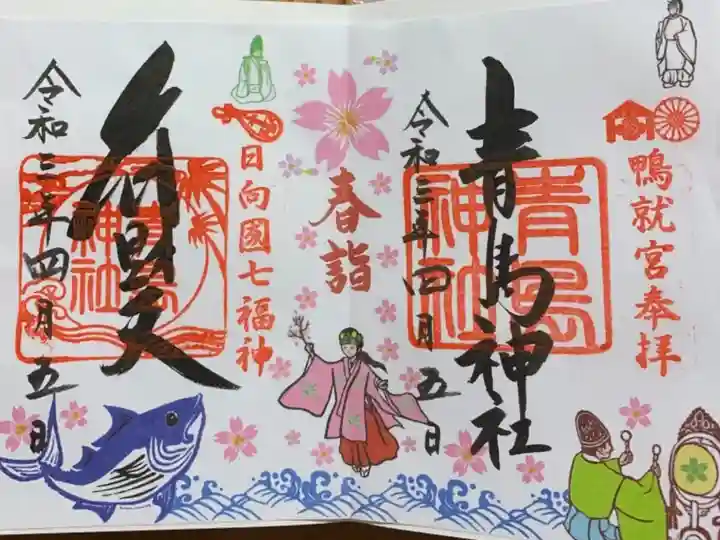 鴨就宮奉拝
青島神社
青島
神社
令和三年四月五日
春詣
日向國七福神
弁財天
青島
神社
令和三年四月五日